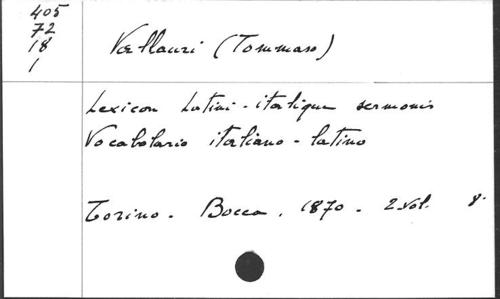 405
72
18
1
Vallauri (Tommaso)
Lexicon Latini-italique sermonis
Vocabolario italiano-latino
Torino. Bocca. 1870. 2 vol. 8.